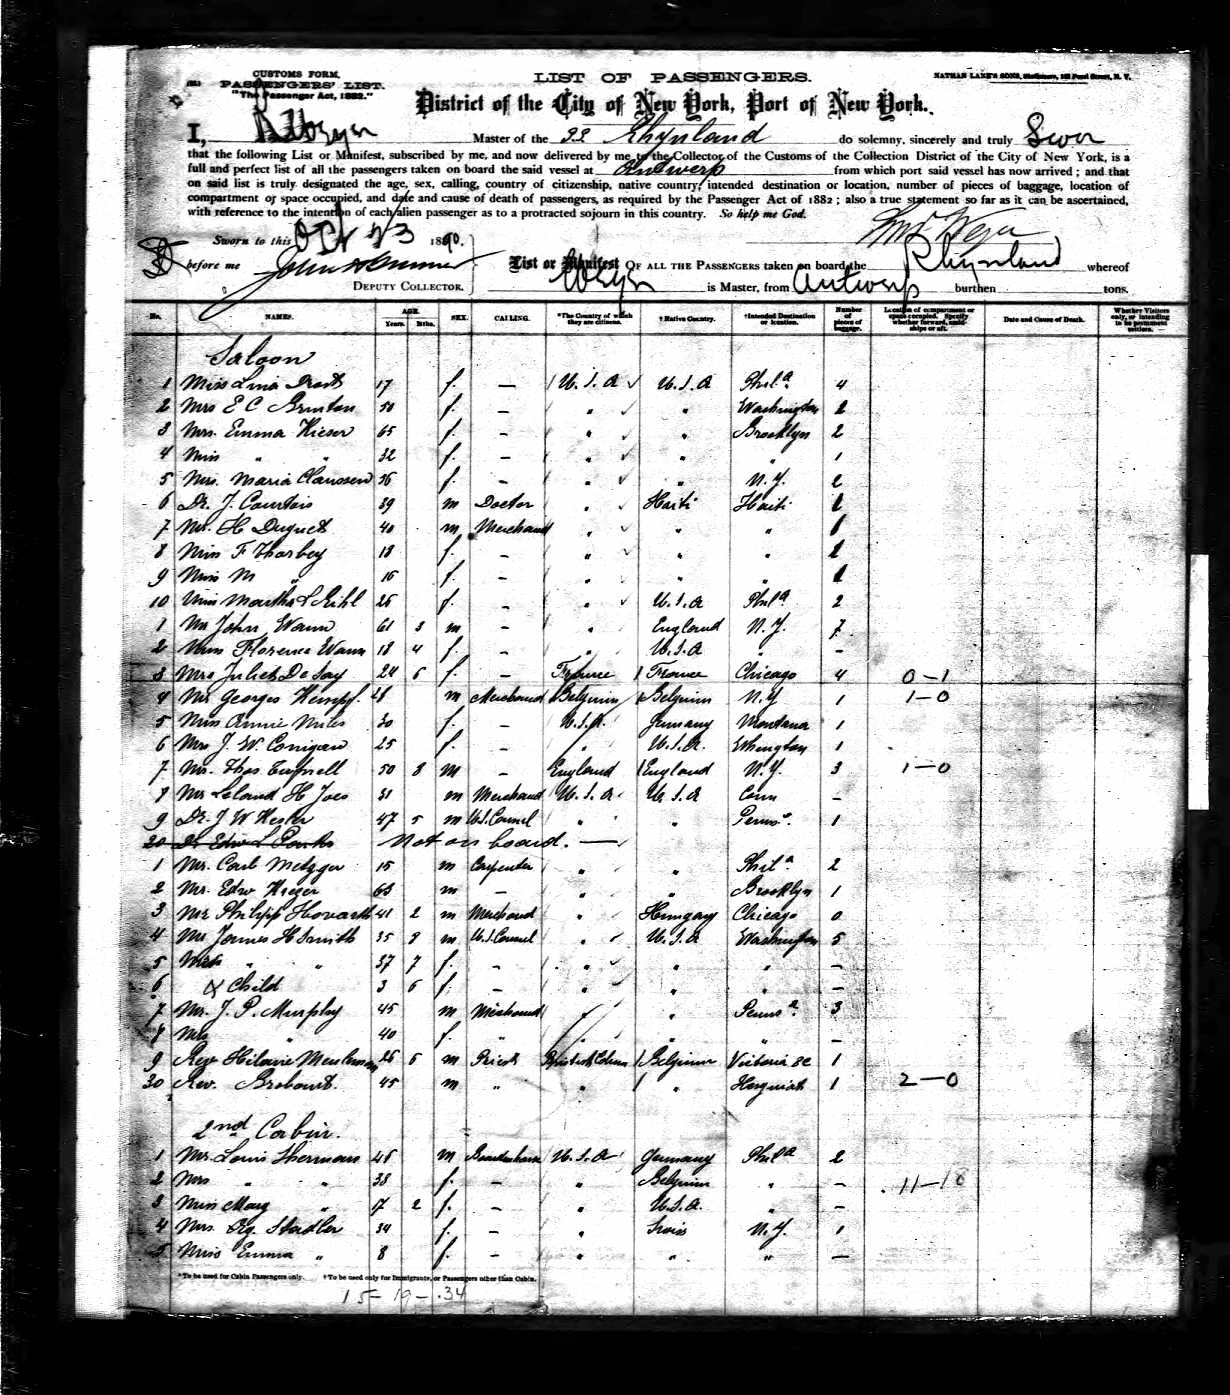 CUSTOMS FORM,
PASSENGERS' LIST.
"The Passenger Act, 1882."
LIST OF PASSENGERS.
NATHAN LANE'S SONS, Stationers, N. Y.
District of the City of New York, Port of New York.
I, Master of the SS Rhynland do solemny, sincerely and truly Swor
that the following List or Manifest, subscribed by me, and now delivered by me to the Collector of the Customs of the Collection District of the City of New York, is a
full and perfect list of all the passengers taken on board the said vessel at Antwerp from which port said vessel has now arrived; and that
on said list is truly designated the age, sex, calling, country of citizenship, native country, intended destination or location, number of pieces of baggage, location of
compartment or space occupied, and date and cause of death of passengers, as required by the Passenger Act of 1882; also a true statement so far as it can be ascertained,
with reference to the intention of each alien passenger as to a protracted sojourn in this country. So help me God.
Sworn to this Oct 23 1890.
before me John
DEPUTY COLLECTOR.
List or Manifest OF ALL THE PASSENGERS taken on board the Rhynland whereof
is Master, from Antwerp burthen tons.
No. NAMES. AGE. Years. Mths. SEX. CALLING. *The Country of which they are citizens. †Native Country. †Intended Destination or location. Number of pieces of baggage. Location of compartment or space occupied. Specify whether forward, amidships or aft. Date and Cause of Death. Whether Visitors only, or intending to be permanent settlers.
Saloon
1 Miss Lina 17 f. — U.S.A U.S.A Phila. 4
2 Mrs E C Brinton 50 f. — " " Washington 2
3 Mrs. Emma Kieser 65 f. — " " Brooklyn 2
4 Miss " " 32 f. — " " " 1
5 Mrs. Maria Claussen 36 f. — " " N.Y. 2
6 Dr. J. Courtois 39 m Doctor " Haiti Haiti
7 Mr. H Duguet 40 m Merchand " " "
8 Miss F Tharbey 18 f. — " " "
9 Miss M " 16 f. — " " "
10 Miss Martha L Kihl 26 f. — " U.S.A Phila. 2
1 Mr John Wann 61 3 m — " England N.Y. 7
2 Miss Florence Wann 18 4 f. — " U.S.A " —
3 Mrs Juliet De Jay 24 6 f. — France France Chicago 4 0-1
4 Mr Georges Kempf. 28 m Merchand Belgium Belgium N.Y 1 1-0
5 Miss Annie Miles 30 f. — U.S.A. Germany Montana 1
6 Mrs J. W. Corrigan 25 f. — " U.S.A. 1
7 Mr. Thos Tufnell 50 8 m — England England N.Y. 3 1-0
8 Mr Leland H Joes 31 m Merchand U.S.A U.S.A Conn —
9 Dr. J. W Hester 47 5 m U.S. Consul " " 1
20 Dr Edw L Parks Not on board. —
1 Mr. Carl Metzger 15 m Carpenter " " Phila 2
2 Mr. Edw Kieser 63 m — " " Brooklyn 1
3 Mr Philipp Hovarth 41 2 m Merchand " Hungary Chicago 0
4 Mr James H Smith 35 9 m U.S. Consul " U.S.A Washington 5
5 Mrs " " 37 7 f. — " " " —
6 & Child 3 6 f. — " " " —
7 Mr. J. P. Murphy 45 m Merchand " " Penna. 3
8 Mrs " 40 f. " " " " —
9 Rev Hilaire Meuleman 26 5 m Priest British Colum Belgium Victoria BC 1
30 Rev. Brabant. 45 m " " " Hesquiat 1 2-0
2nd Cabin.
1 Mr. Louis Sherman 46 m U.S.A Germany Phila 2
2 Mrs " " 38 f. — " Belgium " — 11-18
3 Miss Mary " 17 2 f. — " U.S.A. " —
4 Mrs. Stadler 34 f. — " Swiss N.Y. 1
5 Miss Emma " 8 f. — " " " —
*To be used for Cabin Passengers only. †To be used only for Immigrants, or Passengers other than Cabin.
15-19-.34